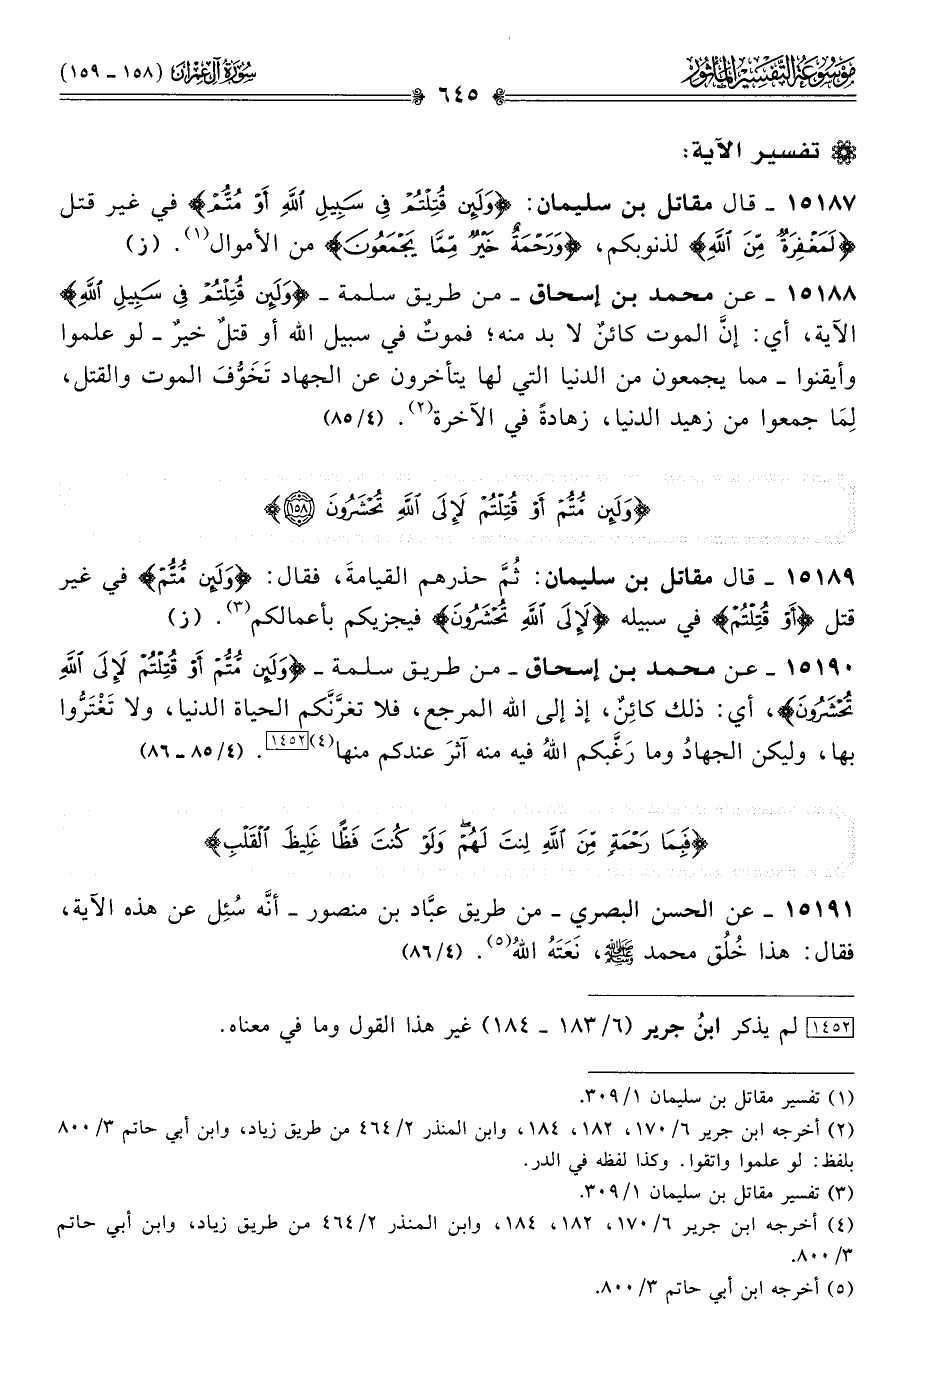 مَوْسُوعَة التَّفْسِير المَأْثُور
سُورَة آل عِمْرَان (١٥٨ - ١٥٩)
٦٤٥
تفسير الآية:
١٥١٨٧ - قال مقاتل بن سليمان: ﴿وَلَئِن قُتِلْتُمْ فِى سَبِيلِ ٱللَّهِ أَوْ مُتُّمْ﴾ في غير قتل
﴿لَمَغْفِرَةٌ مِّنَ ٱللَّهِ﴾ لذنوبكم، ﴿وَرَحْمَةٌ خَيْرٌ مِّمَّا يَجْمَعُونَ﴾ من الأموال(١). (ز)
١٥١٨٨ - عن محمد بن إسحاق - من طريق سلمة - ﴿وَلَئِن قُتِلْتُمْ فِى سَبِيلِ ٱللَّهِ﴾
الآية، أي: إنَّ الموت كائنٌ لا بد منه؛ فموتٌ في سبيل الله أو قتلٌ خيرٌ - لو علموا
وأيقنوا - مما يجمعون من الدنيا التي لها يتأخرون عن الجهاد تَخَوُّفَ الموت والقتل،
لِمَا جمعوا من زهيد الدنيا، زهادةً في الآخرة(٢). (٤/ ٨٥)
﴿وَلَئِن مُّتُّمْ أَوْ قُتِلْتُمْ لَإِلَى ٱللَّهِ تُحْشَرُونَ ١٥٨﴾
١٥١٨٩ - قال مقاتل بن سليمان: ثُمَّ حذرهم القيامةَ، فقال: ﴿وَلَئِن مُّتُّمْ﴾ في غير
قتل ﴿أَوْ قُتِلْتُمْ﴾ في سبيله ﴿لَإِلَى ٱللَّهِ تُحْشَرُونَ﴾ فيجزيكم بأعمالكم(٣). (ز)
١٥١٩٠ - عن محمد بن إسحاق - من طريق سلمة - ﴿وَلَئِن مُّتُّمْ أَوْ قُتِلْتُمْ لَإِلَى ٱللَّهِ
تُحْشَرُونَ﴾، أي: ذلك كائِنٌ، إذ إلى الله المرجع، فلا تغرَّنَّكم الحياة الدنيا، ولا تَغْتَرُّوا
بها، وليكن الجهادُ وما رَغَّبكم اللهُ فيه منه آثرَ عندكم منها(٤)[١٤٥٢]. (٤/ ٨٥ - ٨٦)
﴿فَبِمَا رَحْمَةٍ مِّنَ ٱللَّهِ لِنتَ لَهُمْ ۖ وَلَوْ كُنتَ فَظًّا غَلِيظَ ٱلْقَلْبِ﴾
١٥١٩١ - عن الحسن البصري - من طريق عبَّاد بن منصور - أنَّه سُئِل عن هذه الآية،
فقال: هذا خُلُق محمد ﷺ، نَعَتَهُ اللهُ(٥). (٤/ ٨٦)
[١٤٥٢] لم يذكر ابنُ جرير (٦/ ١٨٣ - ١٨٤) غير هذا القول وما في معناه.
(١) تفسير مقاتل بن سليمان ١/ ٣٠٩.
(٢) أخرجه ابن جرير ٦/ ١٧٠، ١٨٢، ١٨٤، وابن المنذر ٢/ ٤٦٤ من طريق زياد، وابن أبي حاتم ٣/ ٨٠٠
بلفظ: لو علموا واتقوا. وكذا لفظه في الدر.
(٣) تفسير مقاتل بن سليمان ١/ ٣٠٩.
(٤) أخرجه ابن جرير ٦/ ١٧٠، ١٨٢، ١٨٤، وابن المنذر ٢/ ٤٦٤ من طريق زياد، وابن أبي حاتم
٣/ ٨٠٠.
(٥) أخرجه ابن أبي حاتم ٣/ ٨٠٠.